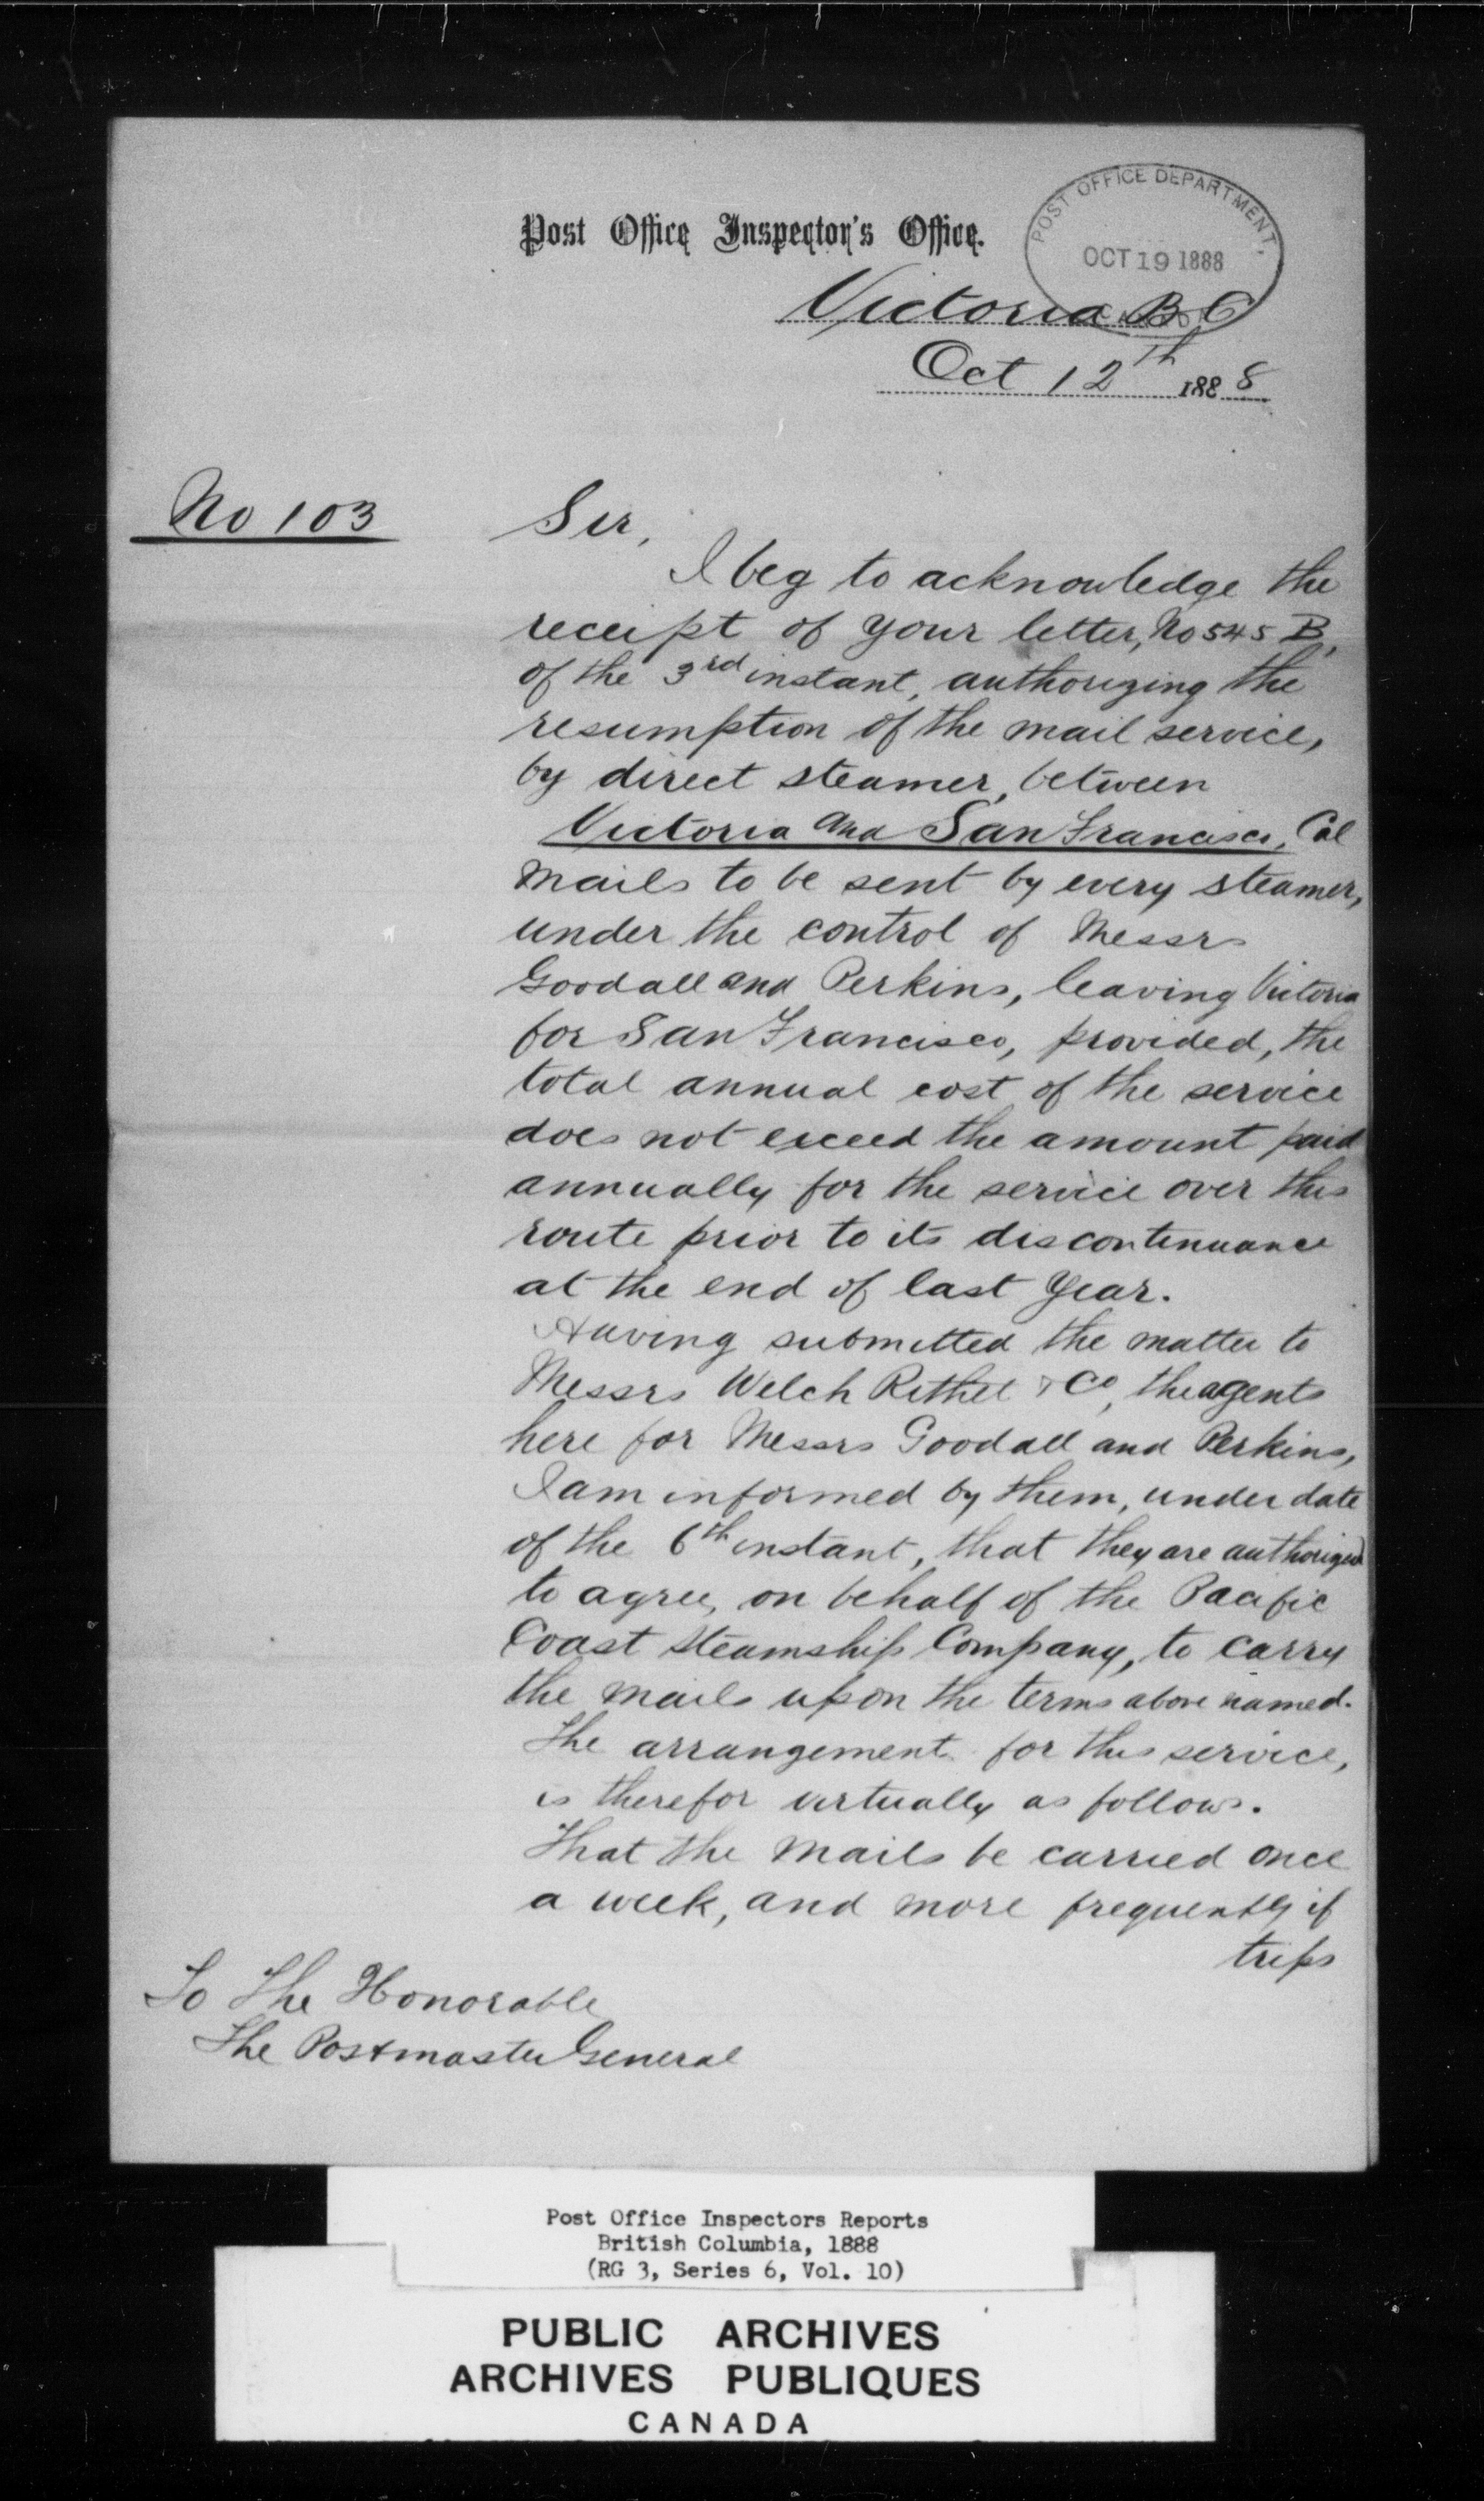 Post Office Inspector's Office.
POST OFFICE DEPARTMENT.
OCT 19 1888
Victoria B C
Oct 12th 1888
No 103
Sir,
I beg to acknowledge the
receipt of your letter, No 545 B,
of the 3rd instant, authorizing the
resumption of the mail service,
by direct steamer, between
Victoria and San Francisco, Cal
Mails to be sent by every steamer,
under the control of Messrs
Goodall and Perkins, leaving Victoria
for San Francisco, provided, the
total annual cost of the service
does not exceed the amount paid
annually for the service over this
route prior to its discontinuance
at the end of last year.
Having submitted the matter to
Messrs Welch Rithet & Co, the agents
here for Messrs Goodall and Perkins,
I am informed by them, under date
of the 6th instant, that they are authorized
to agree, on behalf of the Pacific
Coast Steamship Company, to carry
the mails upon the terms above named.
The arrangement for this service,
is therefor virtually as follows.
That the Mails be carried once
a week, and more frequently if
trips
To The Honorable
The Postmaster General
Post Office Inspectors Reports
British Columbia, 1888
(RG 3, Series 6, Vol. 10)
PUBLIC ARCHIVES
ARCHIVES PUBLIQUES
CANADA